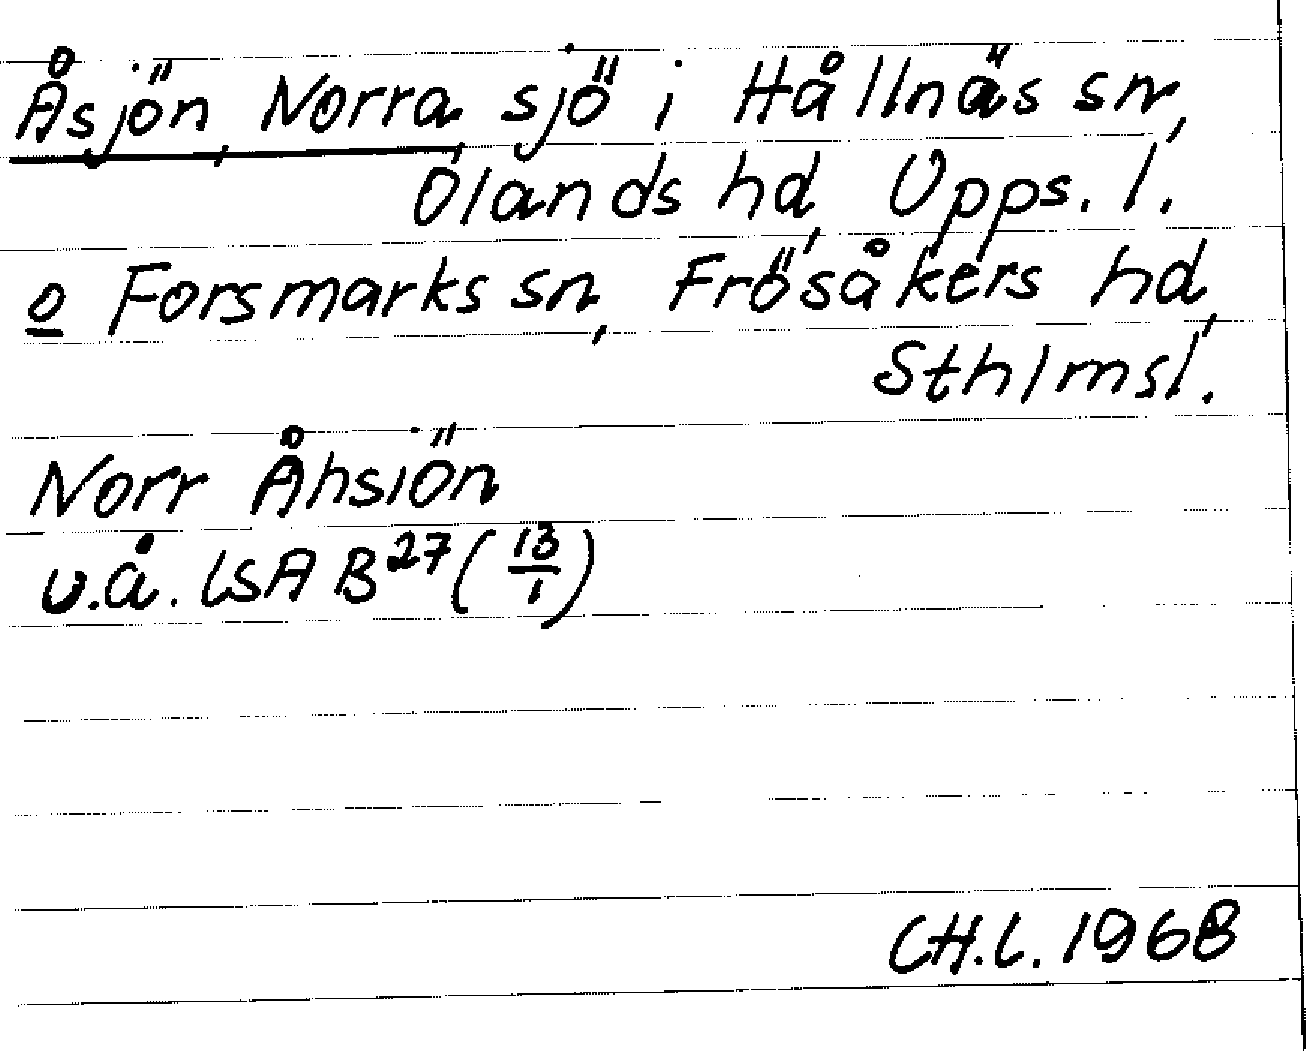 Åsjön, Norra, sjö i Hållnäs sn,
Olands hd, Upps. l.
o Forsmarks sn, Frösåkers hd,
Sthlmsl.
Norr Åhsiön
u.å. LSA B27 (13/1)
CH.L. 1968